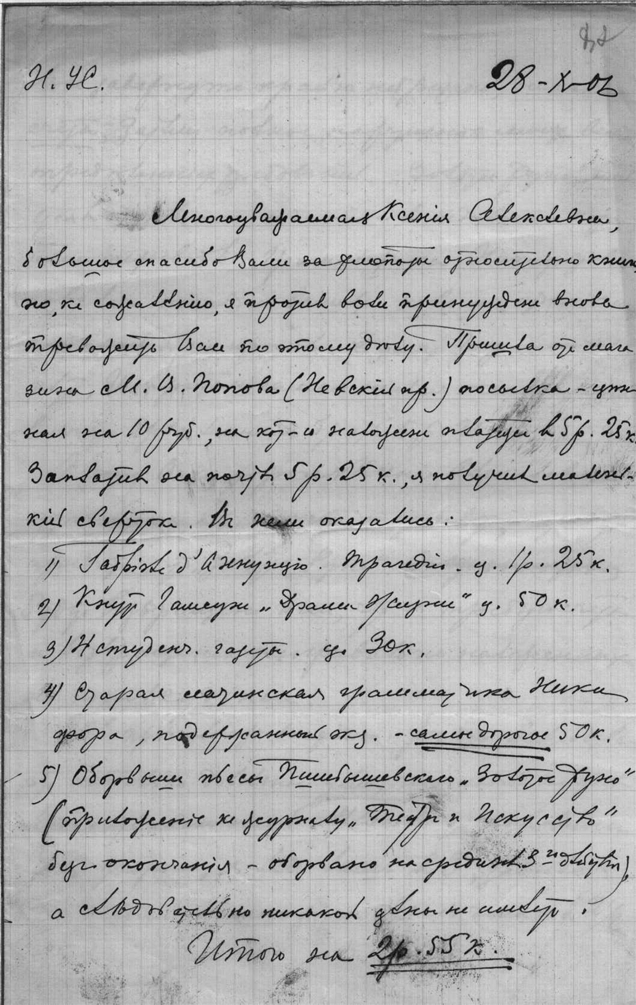 Н. УС.
28-X-06
Многоуважаемая Ксенія Алексѣевна,
большое спасибо Вамъ за хлопоты относительно книгъ,
но, къ сожалѣнію, я противъ воли принужденъ вновь
тревожить Васъ по этому дѣлу. Пришла отъ мага
зина М. В. Попова (Невскій пр.) посылка - цѣн
ная на 10 руб., на кот-и наложенъ платежъ въ 5 р. 25 к.
Заплативъ на почтѣ 5 р. 25 к., я получилъ малень-
кій свертокъ. Въ немъ оказались:
1) Габріэле д'Аннунціо. Трагедіи. ц. 1 р. 25 к.
2) Кнутъ Гамсунъ „Драма Жизни" ц. 50 к.
3) 4 студенч. газеты. ц. 30 к.
4) Старая латинская грамматика Ники
фора, подержанный экз. - самое дорогое 50 к.
5) Оборвыши пьесы Пшибышевскаго „Золотое Руно"
(приложеніе къ журналу „Театръ и Искусство"
безъ окончанія - оборвано на срединѣ 3го дѣйствія),
а слѣдовательно никакой цѣны не имѣетъ.
Итого на 2 р. 55 к.